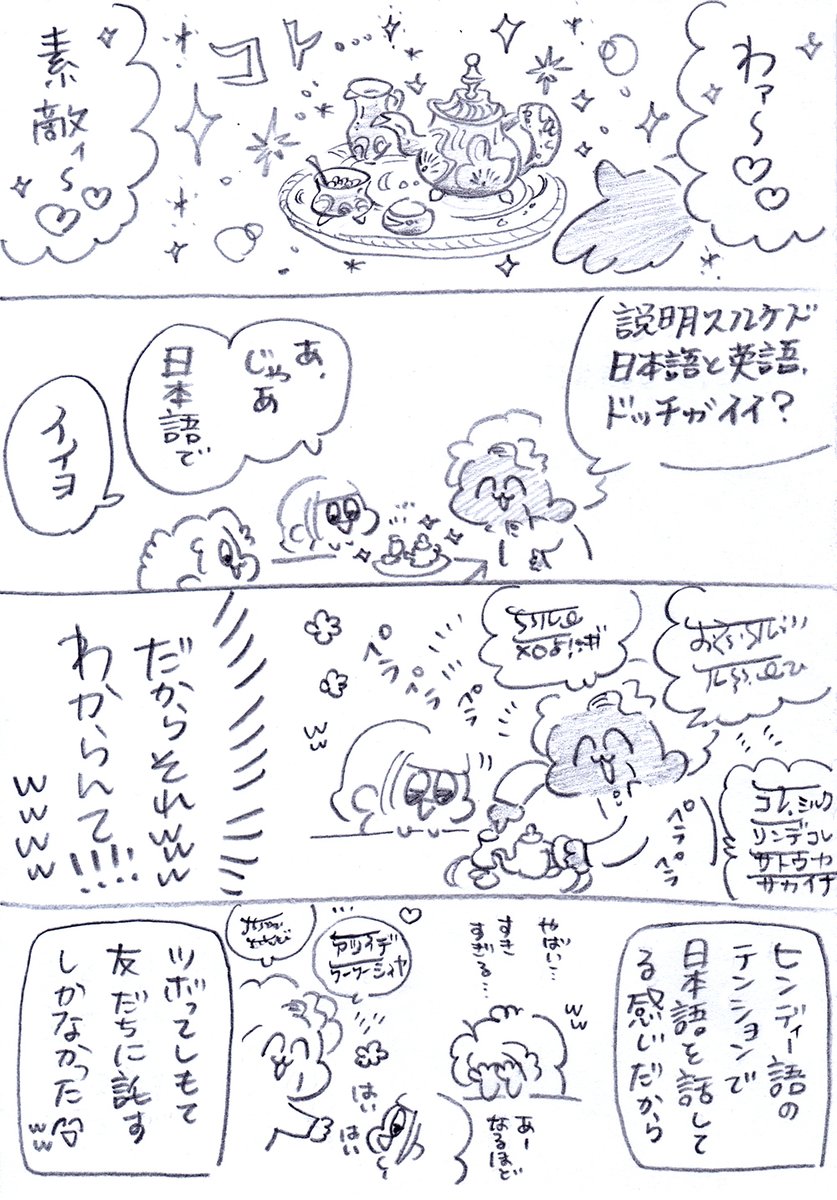 わァ〜♡♡
コト…
素敵ィ〜♡♡
説明スルケド
日本語と英語、
ドッチガイイ?
あ、
じゃあ
日本語で
イイヨ
ペラペラ
ペラ
ペラペラ
コレ、ミルク
ソンデコレ
サトウカ
ww
だからそれww
わからんて!!!!
wwww
ヒンディー語の
テンションで
日本語を話して
る感じだから
やばい…
すき
すぎる…
ww
あー
なるほど
アツイデ
フーフーシィヤ
はい
はい
ツボってしもて
友だちに託す
しかなかった
ww